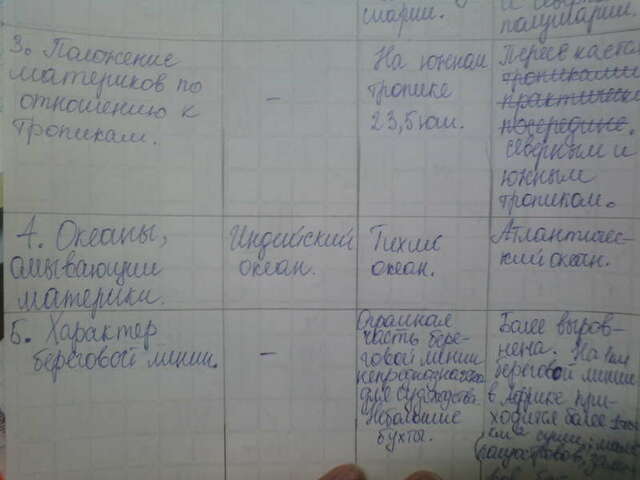 шарии.
полушарии.
3. Положение
материков по
отношению к
тропикам.
-
На южном
тропике
23,5 ю.ш.
тропиками
практически
посередине.
северным и
южным
тропиком.
4. Океаны,
омывающие
материки.
Индийский
океан.
Тихие
океан.
Атлантичес-
кий океан.
5. Характер
береговой линии.
-
часть бере-
говой линии
для судоходства
Небольшие
бухты.
Более выров-
нена. На 1 км
береговой линии
в Африке при-
ходится более
км² суши, мало